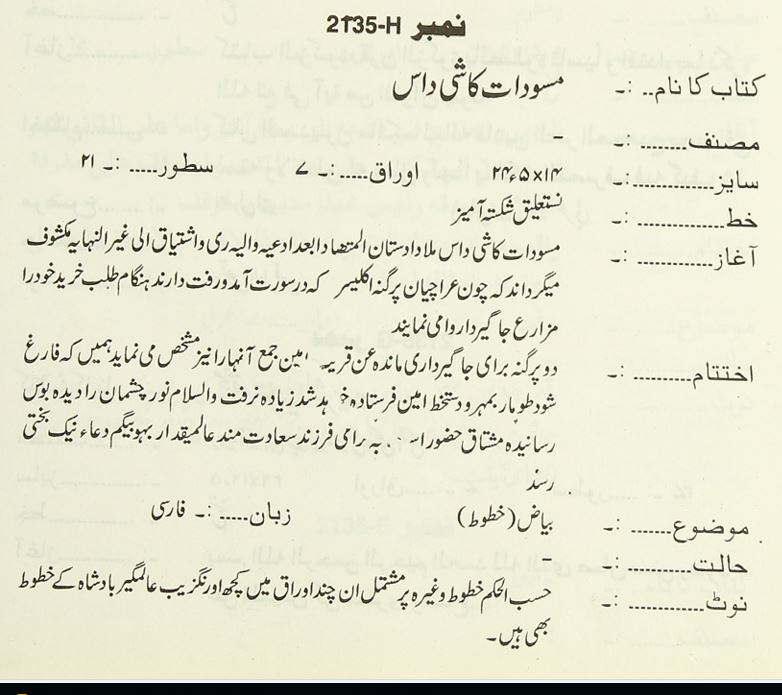 نمبر 2135-H
کتاب کا نام.. :۔ مسودات کاشی داس
مصنف....... :۔ -
سایز............:۔ ۲۴،۵×۱۴ اوراق.....:۔ ۷ سطور..... :۔ ۲۱
خط............ :۔ نستعلیق شکستہ آمیز
آغاز.......... :۔ مسودات کاشی داس ملا دادستان المتضاد ابعد ادعیہ والیہ ری واشتیاق الی غیر النہایہ مکشوف
میگرداند کہ چون عراچیان پرگنہ اکلیسر کہ در سورت آمد ورفت دارند ہنگام طلب خرید خود را
مزارع جاگیردار وامی نمایند
اختتام.......... :۔ دو پرگنہ برای جاگیرداری ماندہ عن قریب امین جمع آنہا را نیز مشخص می نماید ہمیں کہ فارغ
شود طومار بمہر ودستخط امین فرستادہ شد زیادہ نرفت والسلام نور چشمان را دیدہ بوس
رسانیدہ مشتاق حضور بہ برامی فرزند سعادت مند عالمیقدار بہو بیگم دعاء نیک بختی
رسند
موضوع....... :۔ بیاض (خطوط) زبان..... :۔ فارسی
حالت......... :۔ -
نوٹ............ :۔ حسب الحکم خطوط وغیرہ پر مشتمل ان چند اوراق میں کچھ اورنگزیب عالمگیر بادشاہ کے خطوط
بھی ہیں۔